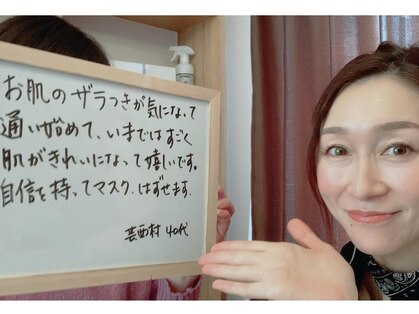 お肌のザラつきが気になって
通い始めて、いまではすごく
肌がきれいになって嬉しいです。
自信を持ってマスク、はずせます。
芸西村 40代